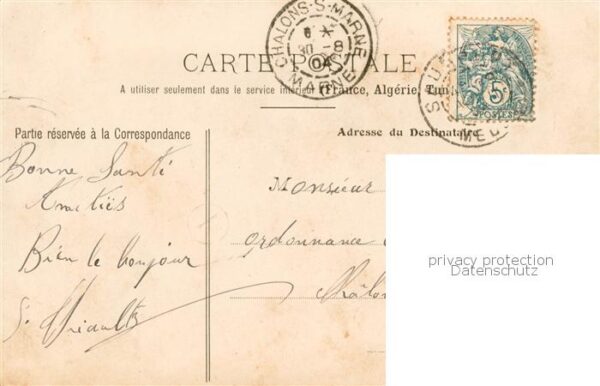 CHALONS-S-MARNE
30 -8
04
MARNE
CARTE POSTALE
A utiliser seulement dans le service intérieur (France, Algérie, Tun
5c
POSTES
Partie réservée à la Correspondance
Adresse du Destinataire
Bonne Santi
Bien le bonjour
Monsieur
ordonnance
Châlon
privacy protection
Datenschutz